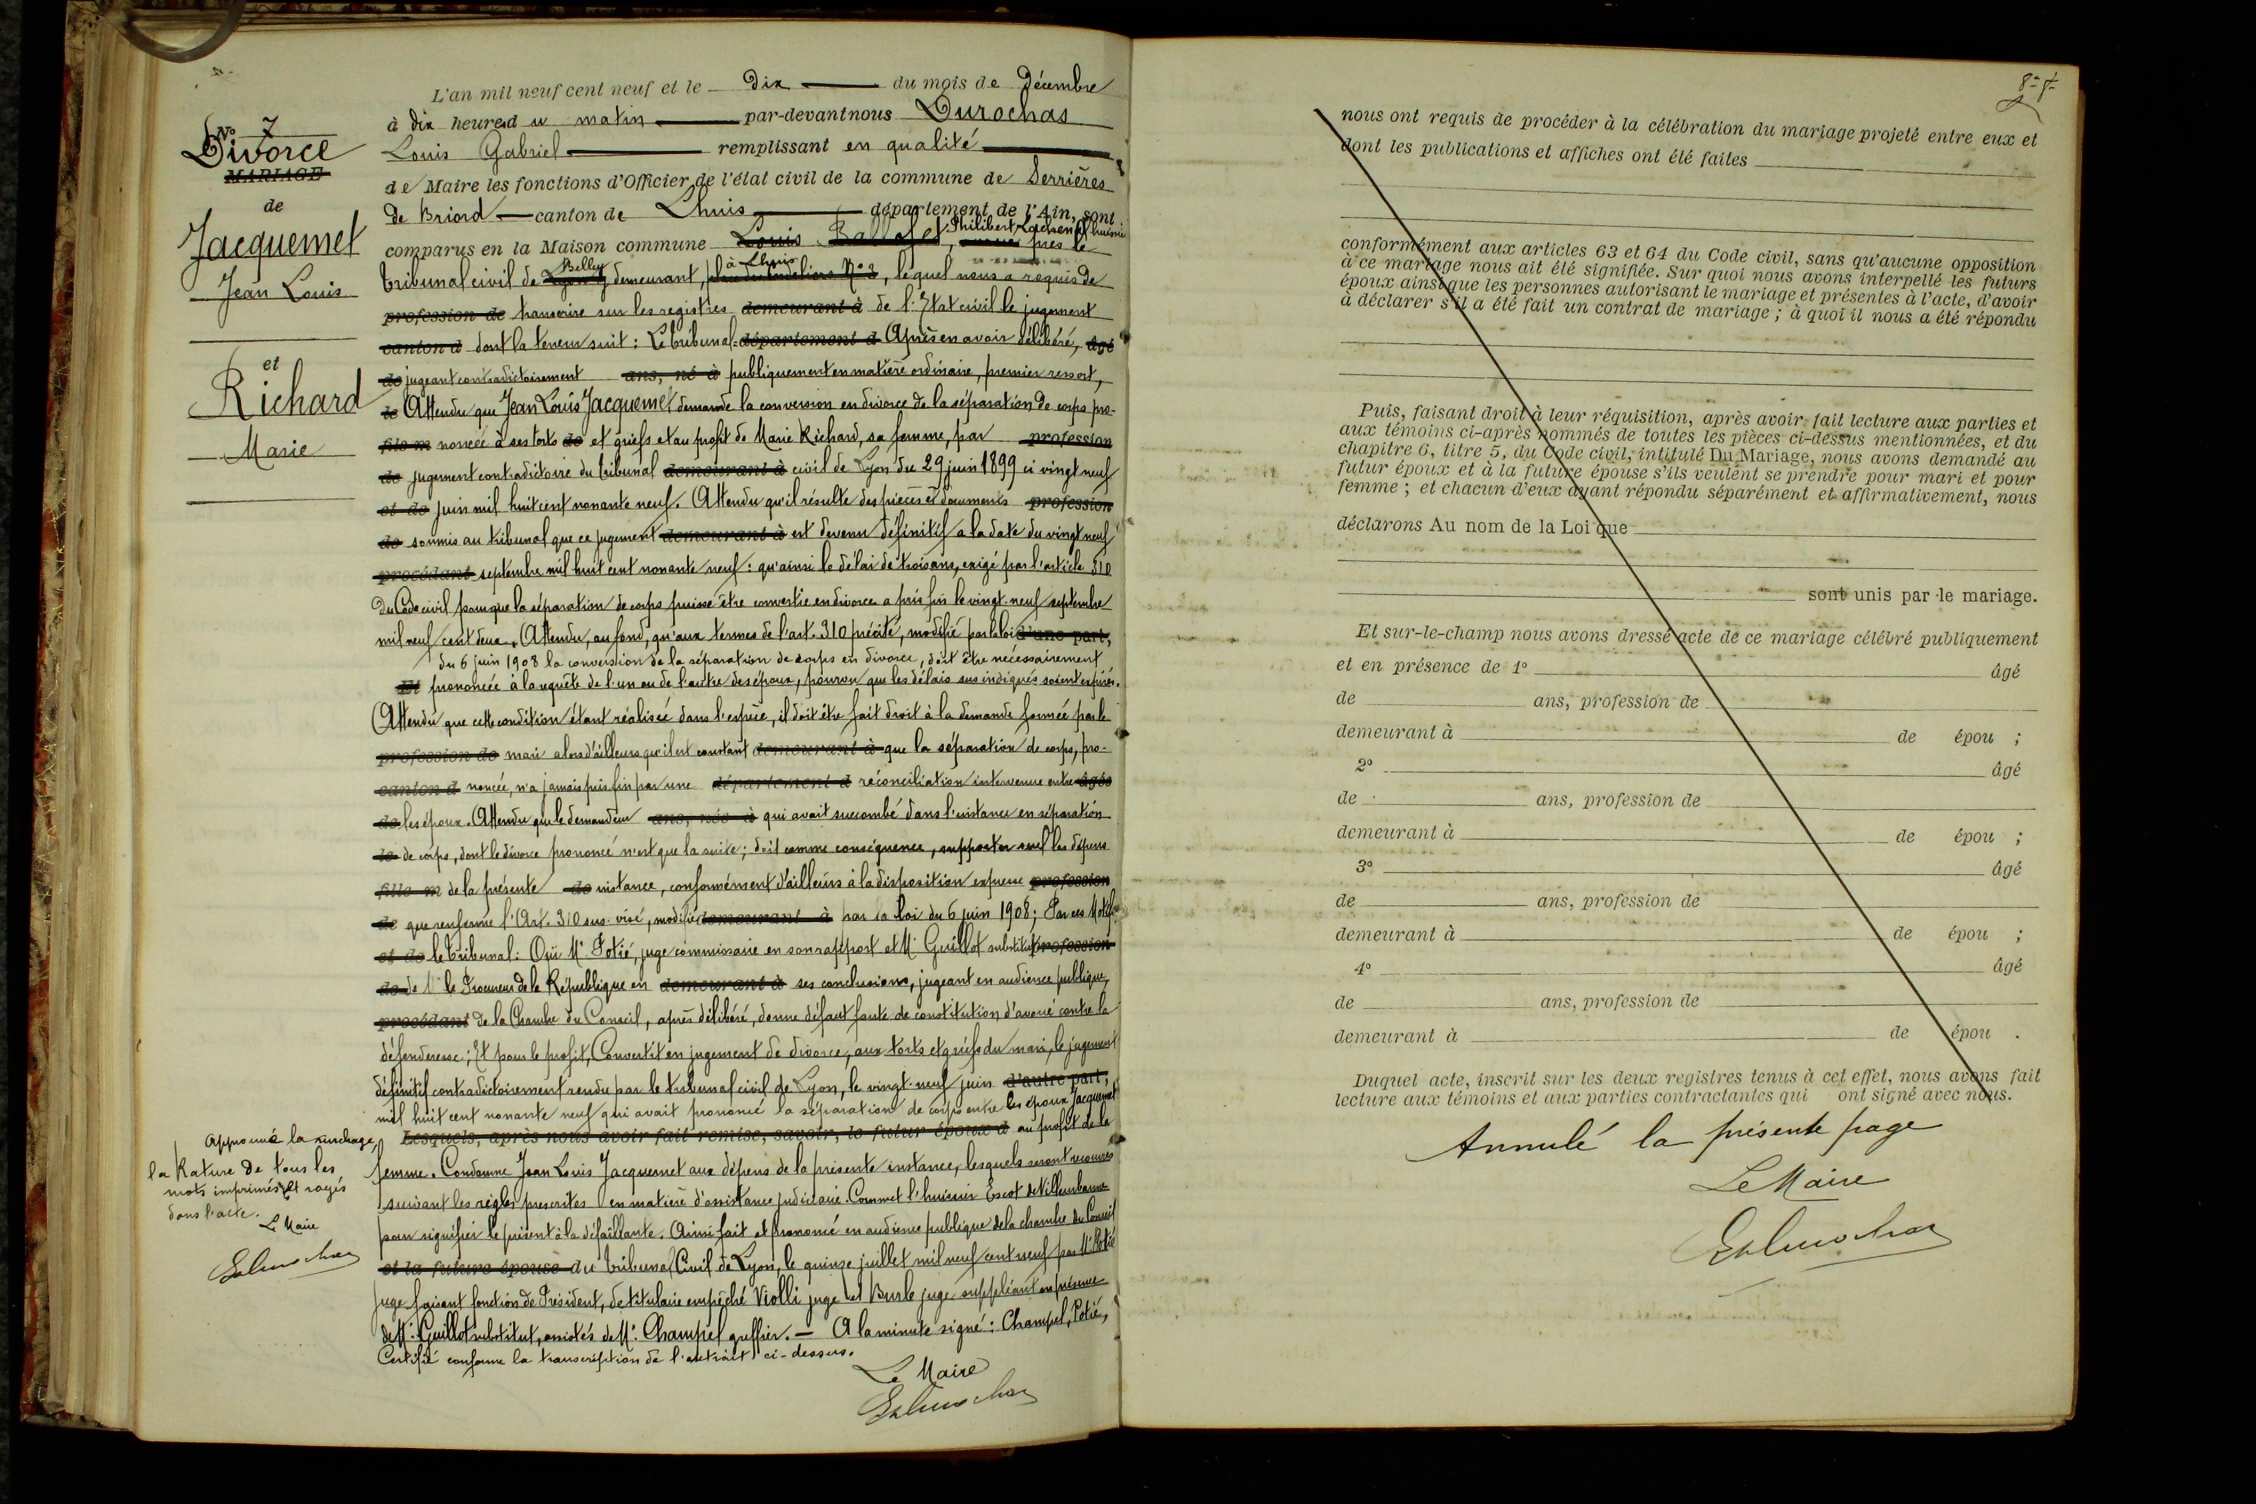 N° 7
Divorce
MARIAGE
de
Jacquemet
Jean Louis
et
Richard
Marie
L'an mil neuf cent neuf et le dix du mois de Décembre
à dix heures du matin par-devant nous Durochas
Louis Gabriel remplissant en qualité
de Maire les fonctions d'Officier de l'état civil de la commune de Serrières
de Briord canton de Lhuis département de l'Ain, sont
comparus en la Maison commune Louis Ballofet, Philibert huissier près le
tribunal civil de Belley demeurant, à Lhuis, lequel nous a requis de
profession de transcrire sur les registres demeurant à de l'Etat civil le jugement
canton d dont la teneur suit : Le tribunal département d Après en avoir délibéré, âgé
de jugeant contradictoirement ans, né à publiquement en matière ordinaire, premier ressort,
le Attendu que Jean Louis Jacquemet demande la conversion en divorce de la séparation de corps pro-
fils m noncée à ses torts de et griefs et au profit de Marie Richard, sa femme, par profession
de jugement contradictoire du tribunal demeurant à civil de Lyon du 29 juin 1899 ci vingt neuf
et de juin mil huit cent nonante neuf. Attendu qu'il résulte des pièces et documents profession
de soumis au tribunal que ce jugement demeurant à est devenu définitif à la date du vingt neuf
procédant septembre mil huit cent nonante neuf : qu'ainsi le délai de trois ans, exigé par l'article 310
du Code civil pour que la séparation de corps puisse être convertie en divorce a pris fin le vingt-neuf septembre
mil neuf cent deux. Attendu, au fond, qu'aux termes de l'art. 310 précité, modifié par la loi d'une part,
du 6 juin 1908 la conversion de la séparation de corps en divorce, doit être nécessairement
Et prononcée à la requête de l'un ou de l'autre des époux, pourvu que les délais sus indiqués soient expirés.
Attendu que cette condition étant réalisée dans l'espèce, il doit être fait droit à la demande formée par le
profession de mari alors d'ailleurs qu'il est constant demeurant à que la séparation de corps, pro-
canton d noncée, n'a jamais pris fin par une département d réconciliation intervenue entre âgée
de les époux. Attendu que le demandeur ans, née à qui avait succombé dans l'instance en séparation
le de corps, dont le divorce prononcé n'est que la suite ; doit comme conséquence, supporter seul les dépens
fille m de la présente de instance, conformément d'ailleurs à la disposition expresse profession
de que renferme l'Art. 310 sus-visé, modifié demeurant à par la loi du 6 juin 1908 ; Par ces Motifs
et de le tribunal : Ouï Mr Potié, juge commissaire en son rapport et Mr Guillot substitut profession
de de Mr le Procureur de la République en demeurant à ses conclusions, jugeant en audience publique,
procédant de la Chambre du Conseil, après délibéré, donne défaut faute de constitution d'avoué contre la
défenderesse ; Et pour le profit, Convertit en jugement de divorce, aux torts et griefs du mari, le jugement
définitif contradictoirement rendu par le tribunal civil de Lyon, le vingt-neuf juin d'autre part,
mil huit cent nonante neuf qui avait prononcé la séparation de corps entre les époux Jacquemet
Lesquels, après nous avoir fait remise, savoir, le futur époux d au profit de la
femme. Condamne Jean Louis Jacquemet aux dépens de la présente instance, lesquels seront recouvrés
suivant les règles prescrites en matière d'assistance judiciaire. Commet l'huissier Escot de Villeurbanne
pour signifier le présent à la défaillante. Ainsi fait et prononcé en audience publique de la chambre du Conseil
et la future épouse du tribunal Civil de Lyon, le quinze juillet mil neuf cent neuf par Mr Potié
juge faisant fonction de Président, de titulaire empêché Violli juge et Burle juge suppléant en présence
de Mr Guillot substitut, assistés de Mr Champel greffier. — A la minute signé : Champel, Potié,
Certifié conforme la transcription de l'extrait ci-dessus.
Le Maire
Approuvé la surcharge,
la Rature de tous les
mots imprimés et rayés
dans l'acte.
Le Maire
nous ont requis de procéder à la célébration du mariage projeté entre eux et
dont les publications et affiches ont été faites
conformément aux articles 63 et 64 du Code civil, sans qu'aucune opposition
à ce mariage nous ait été signifiée. Sur quoi nous avons interpellé les futurs
époux ainsi que les personnes autorisant le mariage et présentes à l'acte, d'avoir
à déclarer s'il a été fait un contrat de mariage ; à quoi il nous a été répondu
Puis, faisant droit à leur réquisition, après avoir fait lecture aux parties et
aux témoins ci-après nommés de toutes les pièces ci-dessus mentionnées, et du
chapitre 6, titre 5, du Code civil, intitulé Du Mariage, nous avons demandé au
futur époux et à la future épouse s'ils veulent se prendre pour mari et pour
femme ; et chacun d'eux ayant répondu séparément et affirmativement, nous
déclarons Au nom de la Loi que
sont unis par le mariage.
Et sur-le-champ nous avons dressé acte de ce mariage célébré publiquement
et en présence de 1° âgé
de ans, profession de
demeurant à de épou ;
2° âgé
de ans, profession de
demeurant à de épou ;
3° âgé
de ans, profession de
demeurant à de épou ;
4° âgé
de ans, profession de
demeurant à de épou .
Duquel acte, inscrit sur les deux registres tenus à cet effet, nous avons fait
lecture aux témoins et aux parties contractantes qui ont signé avec nous.
Annulé la présente page
Le Maire